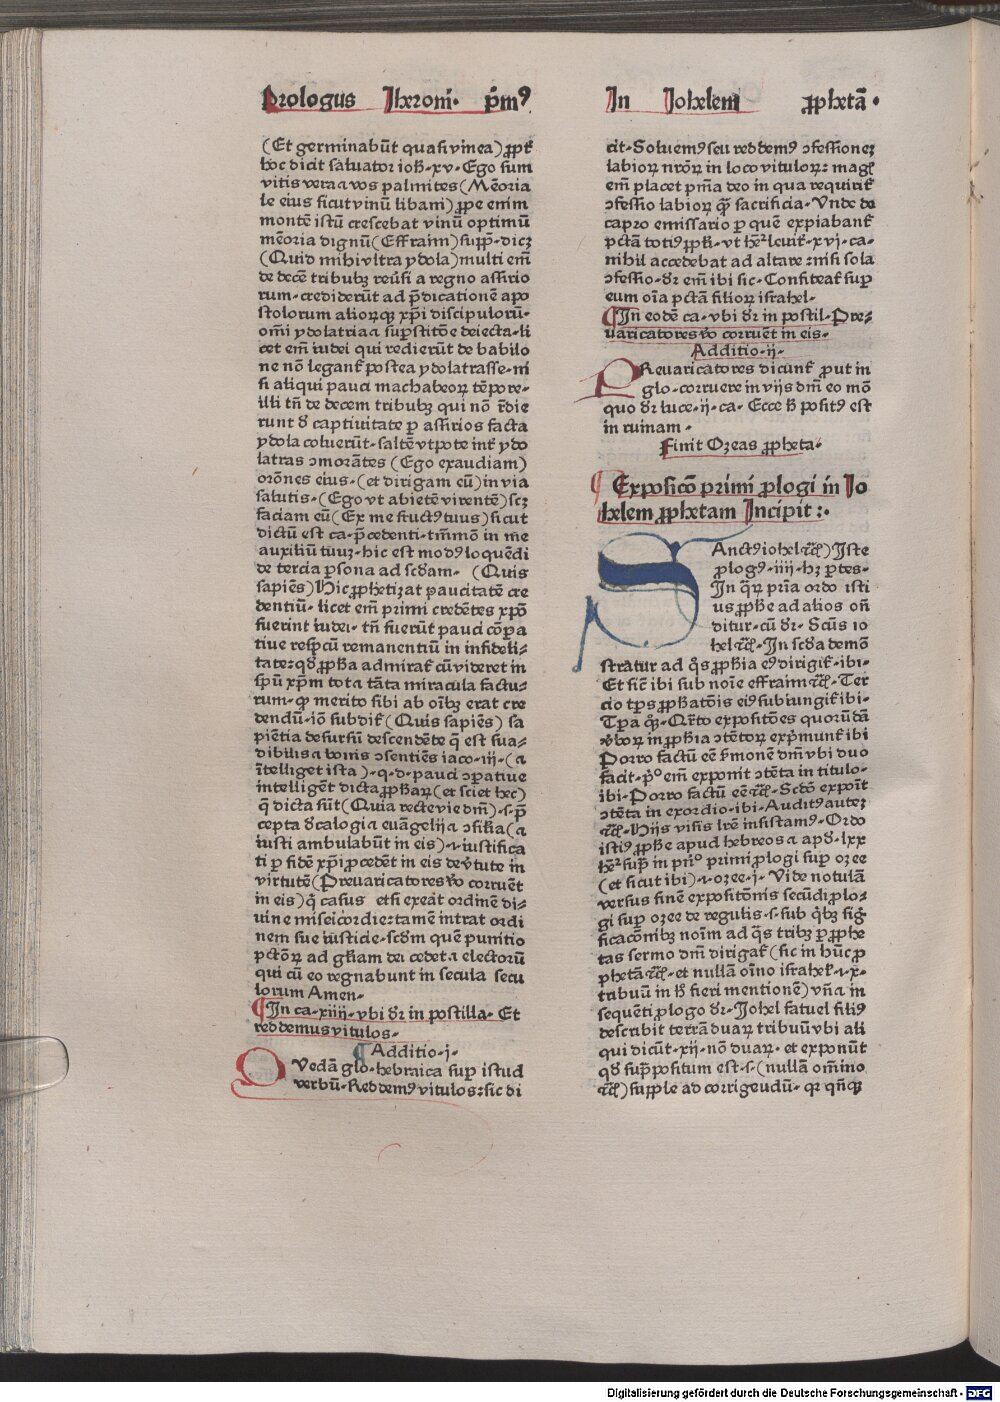 Prologus Iheroni· p̄mꝰ
In Iohelem ꝓphetā·
(Et germinabūt quasi vinea) ꝓpt̄
hoc dicit saluator ioh·xv·Ego sum
vitis vera ⁊ vos palmites (Mēoria
le eius sicut vinū libani) ꝓpe enim
montē istū crescebat vinū optimū
mēoria dignū (Effraim) supp̄·dicꝫ
(Quid mihi vltra ydola) multi em̄
de decē tribubꝫ reūsi a regno assirio
rum·crediderūt ad p̄dicationē apo
stolorum aliorūqꝫ xp̄i discipulorū·
om̄i ydolatria ⁊ sup̄stitōe deiecta·li
cet em̄ iudei qui redierūt de babilo
ne nō legant̄ postea ydolatrasse·ni
si aliqui pauci machabeoꝝ tēpore·
illi tn̄ de decem tribubꝫ qui nō r̄die
runt d̄ captiuitate ꝑ assirios facta
ydola coluerūt·saltē vtpote int̄ ydo
latras ↄmorātes (Ego exaudiam)
orōnes eius·(et dirigam eū) in via
salutis·(Ego vt abietē virentē) scꝫ
faciam eū (Ex me fructꝰ tuus) sicut
dictū est ca·p̄cedenti·tm̄mō in me
auxiliū tuuꝫ·hic est modꝰ loquēdi
de tercia ꝑsona ad scd̄am· (Quis
sapiēs) Hic ꝓphetiꝫat paucitatē cre
dentiū·licet em̄ primi credētes xp̄o
fuerint iudei·tn̄ fuerūt pauci cōpa
tiue resp̄cū remanentiū in infideli⸗
tate:qd̄ ꝓph̄a admirat̄ cū videret in
sp̄u xp̄m tot ⁊ tāta miracula factu⸗
rum·qꝫ merito sibi ab oībꝫ erat cre
dendū·iō subdit̄ (Quis sapiēs) sa
piētia desursū descendēte q̄ est sua⸗
dibilis ⁊ bonis ↄsentiēs iaco·iij·(⁊
ītelliget ista)·q·d·pauci ↄꝑatiue
intelligēt dicta ꝓph̄aꝝ (et sciet hec)
q̄ dicta sūt (Quia recte vie dn̄i)·s·p̄
cepta d̄calogi ⁊ euāgelij ⁊ ↄsilia (⁊
iusti ambulabūt in eis)·i·iustifica
ti ꝑ fidē xp̄i ꝓcedēt in eis de v̄tute in
virtutē (Preuaricatores v̄o corruēt
in eis) q̄ casus etsi exeat ordinē di⸗
uine misericordie:tamē intrat ordi
nem sue iusticie·scd̄m quē punitio
pctōꝝ ad gl̄iam dei cedet ⁊ electorū
qui cū eo regnabunt in secula secu
lorum Amen·
¶In ca·xiiij·vbi dr̄ in postilla·Et
reddemus vitulos·
¶Additio·j·
Quedā glo·hebraica sup istud
verbū·Reddemꝰ vitulos:sic di
cit·Soluemꝰ seu reddemꝰ ↄfessioneꝫ
labioꝝ nr̄oꝝ in loco vituloꝝ:magꝭ
em̄ placet pm̄a deo in qua requirit̄
ↄfessio labioꝝ qꝫ sacrificia·Vnde de
capro emissario ꝑ quē expiabant̄
pctā totiꝰ ppl̄i·vt hr̄ leuit·xvj·ca·
nihil accedebat ad altare:nisi sola
ↄfessio·dr̄ em̄ ibi sic·Confiteat̄ sup
eum oīa pctā filioꝝ israhel·
¶In eodē ca·vbi dr̄ in postil·Pre⸗
uaricatores v̄o corruēt in eis·
Additio·ij·
PReuaricatores dicunt̄ ꝓut in
glo·corruere in vijs dn̄i eo mō
quo dr̄ luce·ij·ca·Ecce h̄ positꝰ est
in ruinam·
Finit Oꝫeas ꝓpheta·
¶Exposicō primi ꝓlogi in Io
helem ꝓphetam Incipit:·
SAnctꝰ iohel ⁊cꝭ) Iste
ꝓlogꝰ·iiij·hꝫ ꝑtes·
In q̄ꝝ pria ordo isti
us ꝓph̄e ad alios oñ
ditur·cū dr̄·Scūs io
hel ⁊cꝭ·In scd̄a demō
stratur ad q̄s ꝓph̄ia eꝰ dirigit̄·ibi·
Et sic ibi sub noīe effraim ⁊cꝭ·Ter
cio tp̄s ꝓph̄atōis eiꝰ subiungit̄ ibi·
Tꝑa qꝫ·Qr̄to expositōes quorūdā
v̄boꝝ in ꝓph̄ia ↄtētoꝝ exp̄munt̄ ibi
Porro factū eē s̄monē dn̄i vbi duo
facit·pͦ em̄ exponit ↄtēta in titulo·
ibi·Porro factū eē ⁊cꝭ·Scd̄o expoīt
ↄtēta in exordio·ibi·Auditꝰ auteꝫ
⁊cꝭ·Hijs visis lr̄e insistamꝰ·Ordo
istiꝰ ꝓph̄e apud hebreos ⁊ apd̄·lxx
hr̄ sup̄ in pn̄ͦ primi ꝓlogi sup oꝫee
(et sicut ibi)·i·oꝫee·j·Vide notulā
versus finē expositōnis secūdi ꝓlo⸗
gi sup oꝫee de regulis·s·sub q̄bꝫ siḡ
ficacōnibꝫ noīm ad q̄s tribꝫ ꝑ ꝓphe
tas sermo dn̄i dirigat̄ (sic in hūc ꝓ
phetā ⁊cꝭ·et nullā oīno israhel·i·x·
tribuū in h̄ fieri mentionē) vn̄ ⁊ in
sequēti ꝓlogo dr̄·Iohel fatuel filiꝰ
describit terrā duaꝝ tribuū vbi ali
qui dicūt·xij·nō duaꝝ·et exponūt
qd̄ sup̄positum est·s·(nullā omīno
⁊cꝭ) supple ad corrigendū·qꝛ qn̄qꝫ
Digitalisierung gefördert durch die Deutsche Forschungsgemeinschaft · DFG